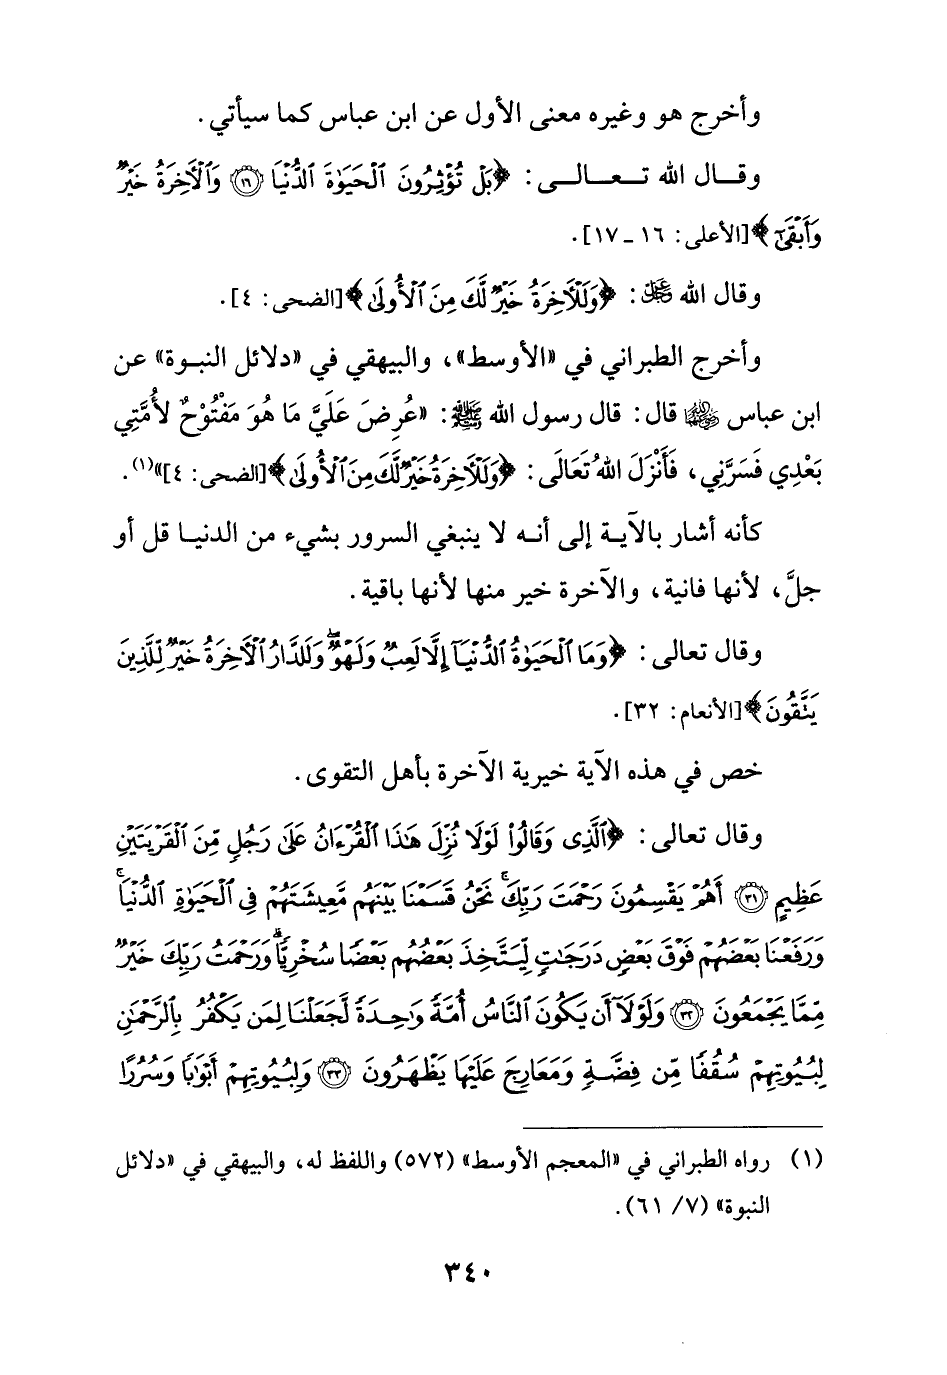 وأخرج هو وغيره معنى الأول عن ابن عباس كما سيأتي.
وقـــال الله تـــعـــالـــى: ﴿بَلْ تُؤْثِرُونَ ٱلْحَيَوٰةَ ٱلدُّنْيَا ۝١٦ وَٱلْـَٔاخِرَةُ خَيْرٌ
وَأَبْقَىٰٓ﴾ [الأعلى: ١٦ ـ ١٧].
وقال الله ﷻ: ﴿وَلَلْـَٔاخِرَةُ خَيْرٌ لَّكَ مِنَ ٱلْأُولَىٰ﴾ [الضحى: ٤].
وأخرج الطبراني في «الأوسط»، والبيهقي في «دلائل النبـوة» عن
ابن عباس ﵄ قال: قال رسول الله ﷺ: «عُرِضَ عَلَيَّ مَا هُوَ مَفْتُوْحٌ لأُمَّتِي
بَعْدِي فَسَرَّنِي، فَأَنْزَلَ اللهُ تَعَالَى: ﴿وَلَلْـَٔاخِرَةُ خَيْرٌ لَّكَ مِنَ ٱلْأُولَىٰ﴾ [الضحى: ٤]»(١).
كأنه أشار بالآيـة إلى أنـه لا ينبغي السرور بشيء من الدنيـا قل أو
جلَّ، لأنها فانية، والآخرة خير منها لأنها باقية.
وقال تعالى: ﴿وَمَا ٱلْحَيَوٰةُ ٱلدُّنْيَآ إِلَّا لَعِبٌ وَلَهْوٌ ۖ وَلَلدَّارُ ٱلْـَٔاخِرَةُ خَيْرٌ لِّلَّذِينَ
يَتَّقُونَ﴾ [الأنعام: ٣٢].
خص في هذه الآية خيرية الآخرة بأهل التقوى.
وقال تعالى: ﴿ٱلَّذِى وَقَالُوا۟ لَوْلَا نُزِّلَ هَٰذَا ٱلْقُرْءَانُ عَلَىٰ رَجُلٍ مِّنَ ٱلْقَرْيَتَيْنِ
عَظِيمٍ ۝٣١ أَهُمْ يَقْسِمُونَ رَحْمَتَ رَبِّكَ ۚ نَحْنُ قَسَمْنَا بَيْنَهُم مَّعِيشَتَهُمْ فِى ٱلْحَيَوٰةِ ٱلدُّنْيَا ۚ
وَرَفَعْنَا بَعْضَهُمْ فَوْقَ بَعْضٍ دَرَجَٰتٍ لِّيَتَّخِذَ بَعْضُهُم بَعْضًا سُخْرِيًّا ۗ وَرَحْمَتُ رَبِّكَ خَيْرٌ
مِّمَّا يَجْمَعُونَ ۝٣٢ وَلَوْلَآ أَن يَكُونَ ٱلنَّاسُ أُمَّةً وَٰحِدَةً لَّجَعَلْنَا لِمَن يَكْفُرُ بِٱلرَّحْمَٰنِ
لِبُيُوتِهِمْ سُقُفًا مِّن فِضَّةٍ وَمَعَارِجَ عَلَيْهَا يَظْهَرُونَ ۝٣٣ وَلِبُيُوتِهِمْ أَبْوَٰبًا وَسُرُرًا
(١) رواه الطبراني في «المعجم الأوسط» (٥٧٢) واللفظ له، والبيهقي في «دلائل
النبوة» (٧/ ٦١).
٣٤٠